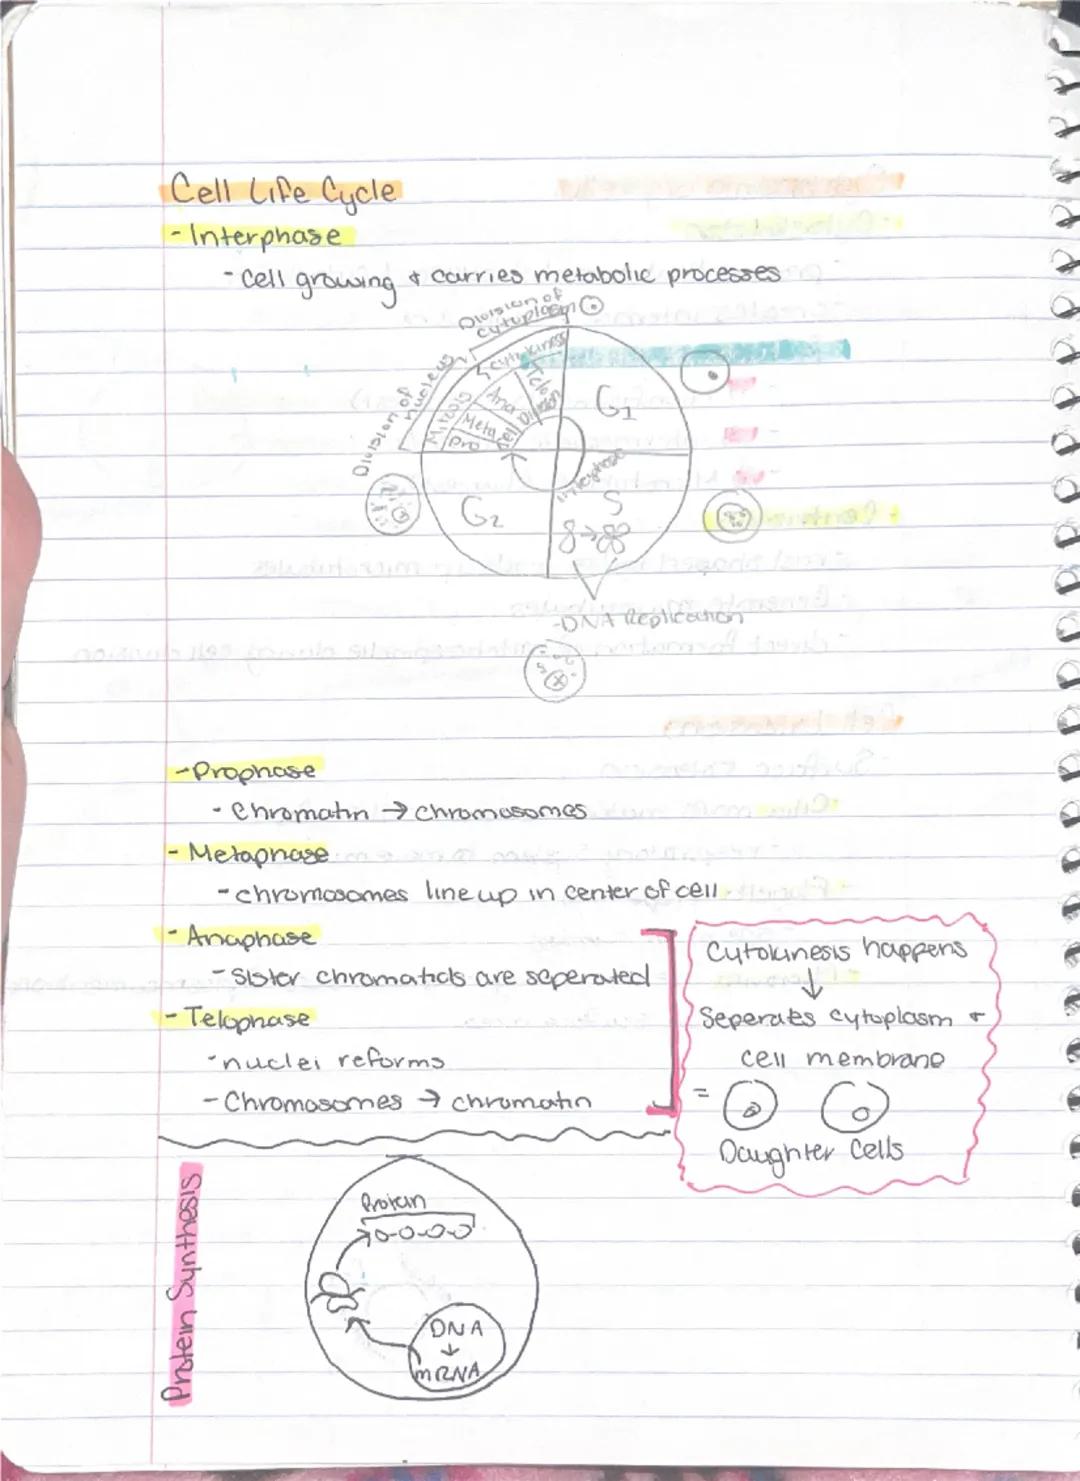 Cell Life Cycle
- Interphase
- Cell growing + carries metabolic processes
Division of
cytoplasm
Division of
nucleus
Cytokinesis
Mitosis
Pro
Meta
Ana
Telo
Cell Division
G1
Interphase
S
G2
- DNA Replication
- Prophase
- Chromatin → chromosomes
- Metaphase
- chromosomes line up in center of cell
- Anaphase
- Sister chromatids are seperated
- Telophase
- nuclei reforms
- Chromosomes → chromatin
Cytokinesis happens
↓
Seperates cytoplasm +
cell membrane
=
Daughter Cells
Protein Synthesis
Protein
DNA
↓
mRNA